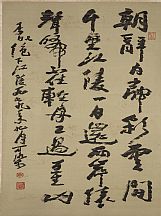 朝辭白帝彩雲間
千里江陵一日還兩岸猿
聲啼不住輕舟已過萬重山
下江陵